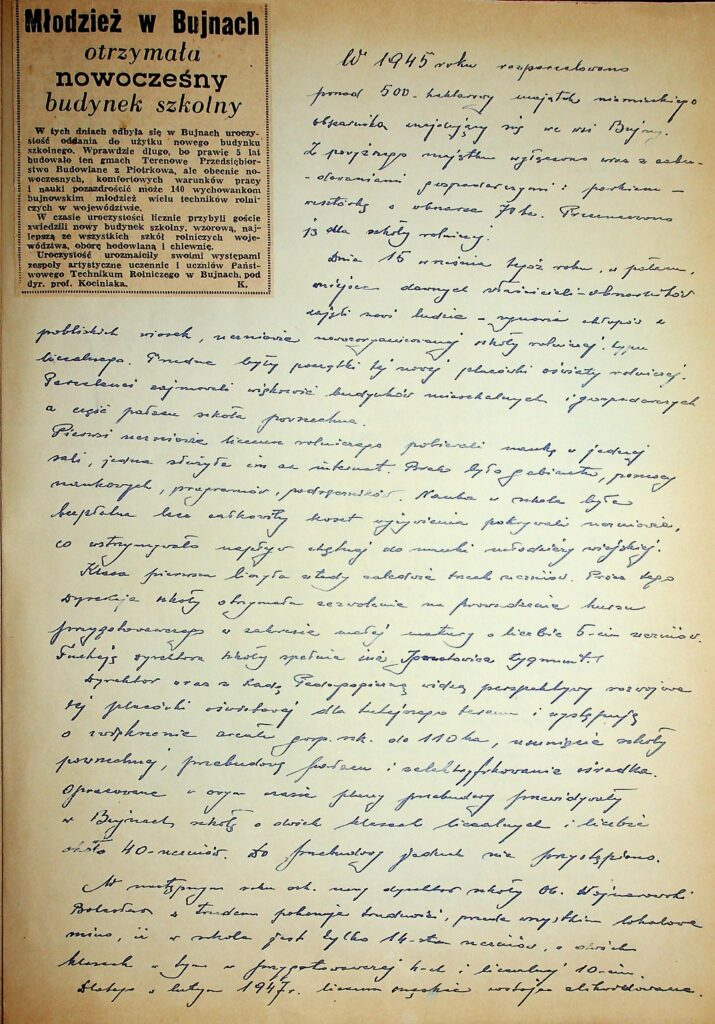 Młodzież w Bujnach
otrzymała
nowocześny
budynek szkolny
W tych dniach odbyła się w Bujnach uroczy-
stość oddania do użytku nowego budynku
szkolnego. Wprawdzie długo, bo prawie 5 lat
budowało ten gmach Terenowe Przedsiębior-
stwo Budowlane z Piotrkowa, ale obecnie no-
woczesnych, komfortowych warunków pracy
i nauki pozazdrościć może 140 wychowankom
bujnowskim młodzież wielu techników rolni-
czych w województwie.
W czasie uroczystości licznie przybyli goście
zwiedzili nowy budynek szkolny, wzorową, naj-
lepszą ze wszystkich szkół rolniczych woje-
wództwa, oborę hodowlaną i chlewnię.
Uroczystość urozmaiciły swoimi występami
zespoły artystyczne uczennic i uczniów Pańs-
twowego Technikum Rolniczego w Bujnach, pod
dyr. prof. Kociniaka. K.
W 1945 roku rozparcelowano
ponad 500-hektarowy majątek niemieckiego
obszarnika znajdujący się we wsi Bujny.
Z powyższego majątku wyłączono wraz z zabu-
dowaniami gospodarczymi i parkiem –
resztówkę o obszarze 70 ha. Przeznaczono
ją dla szkoły rolniczej.
Dnia 15 września tegoż roku, w pałacu,
miejsce dawnych właścicieli-obszarników
zajęli nowi ludzie – synowie chłopów z
pobliskich wiosek, uczniowie nowozorganizowanej szkoły rolniczej typu
licealnego. Trudne były początki tej nowej placówki oświaty rolniczej.
Parcelanci zajmowali większość budynków mieszkalnych i gospodarczych
a część pałacu szkoła powszechna.
Pierwsi uczniowie liceum rolniczego pobierali naukę w jednej
sali, jedna służyła im za internat. Brak było gabinetów, pomocy
naukowych, programów, podręczników. Nauka w szkole była
bezpłatna lecz całkowity koszt wyżywienia pokrywali uczniowie,
co wstrzymywało napływ chętnej do nauki młodzieży wiejskiej.
Klasa pierwsza liczyła wtedy zaledwie trzech uczniów. Poza tego
Dyrekcja szkoły otrzymała zezwolenie na prowadzenie kursu
przygotowawczego w zakresie małej matury o liczbie 5-ciu uczniów.
Funkcję dyrektora szkoły spełnia inż. Zygmunt.
Dyrektor wraz z Radą Pedagogiczną widzą perspektywy rozwojowe
tej placówki oświatowej dla tutejszego terenu i występują
o zwiększenie areału gosp. szk. do 110 ha, usunięcie szkoły
powszechnej, przebudowę pałacu i zelektryfikowanie ośrodka.
Opracowane w owym czasie plany przebudowy przewidywały
w Bujnach szkołę o dwóch klasach licealnych i liczbie
około 40-uczniów. Do przebudowy jednak nie przystąpiono.
W następnym roku szk. nowy dyrektor szkoły Ob. Wojnarowski
Bolesław z trudem pokonuje trudności, przede wszystkim lokalowe
mimo, iż w szkole jest tylko 14-stu uczniów, w dwóch
klasach w tym w przygotowawczej 4-ch i licealnej 10-ciu.
Dlatego w lutym 1947 r. liceum męskie zostaje zlikwidowane.